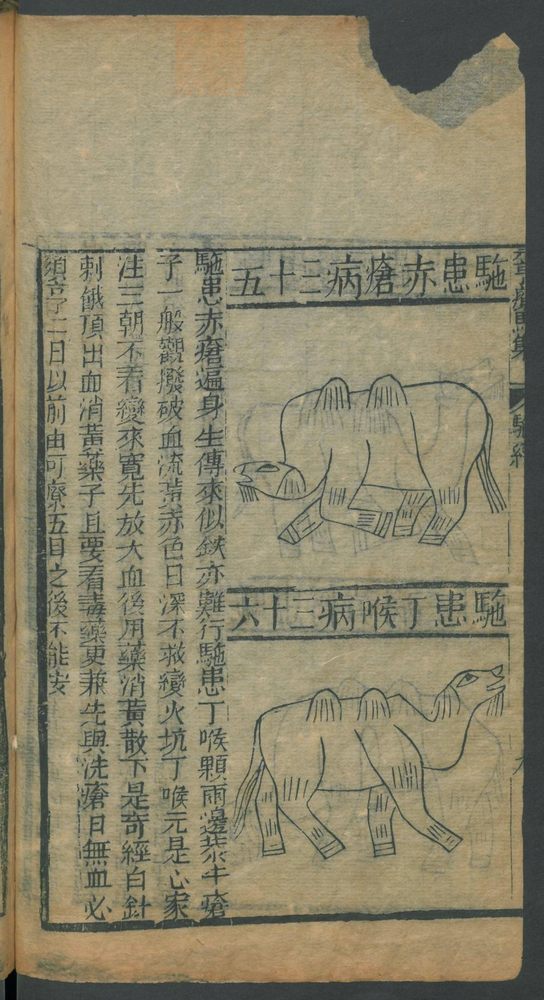 駞患赤瘡病三十五
駞患丁喉病三十六
駞患赤瘡遍身生傳來似鉄亦難行駞患丁喉顆兩邊茶牛瘡
子一般觀撥破血流黃赤色日深不救變火坑丁喉元是心家
注三朝不着變來寃先放大血後用藥消黃散下是奇經白針
刺餓頂出血消黃藥子且要看毒藥更兼先與洗瘡日無血必
二日以前由可療五日之後不能安
駞經
九